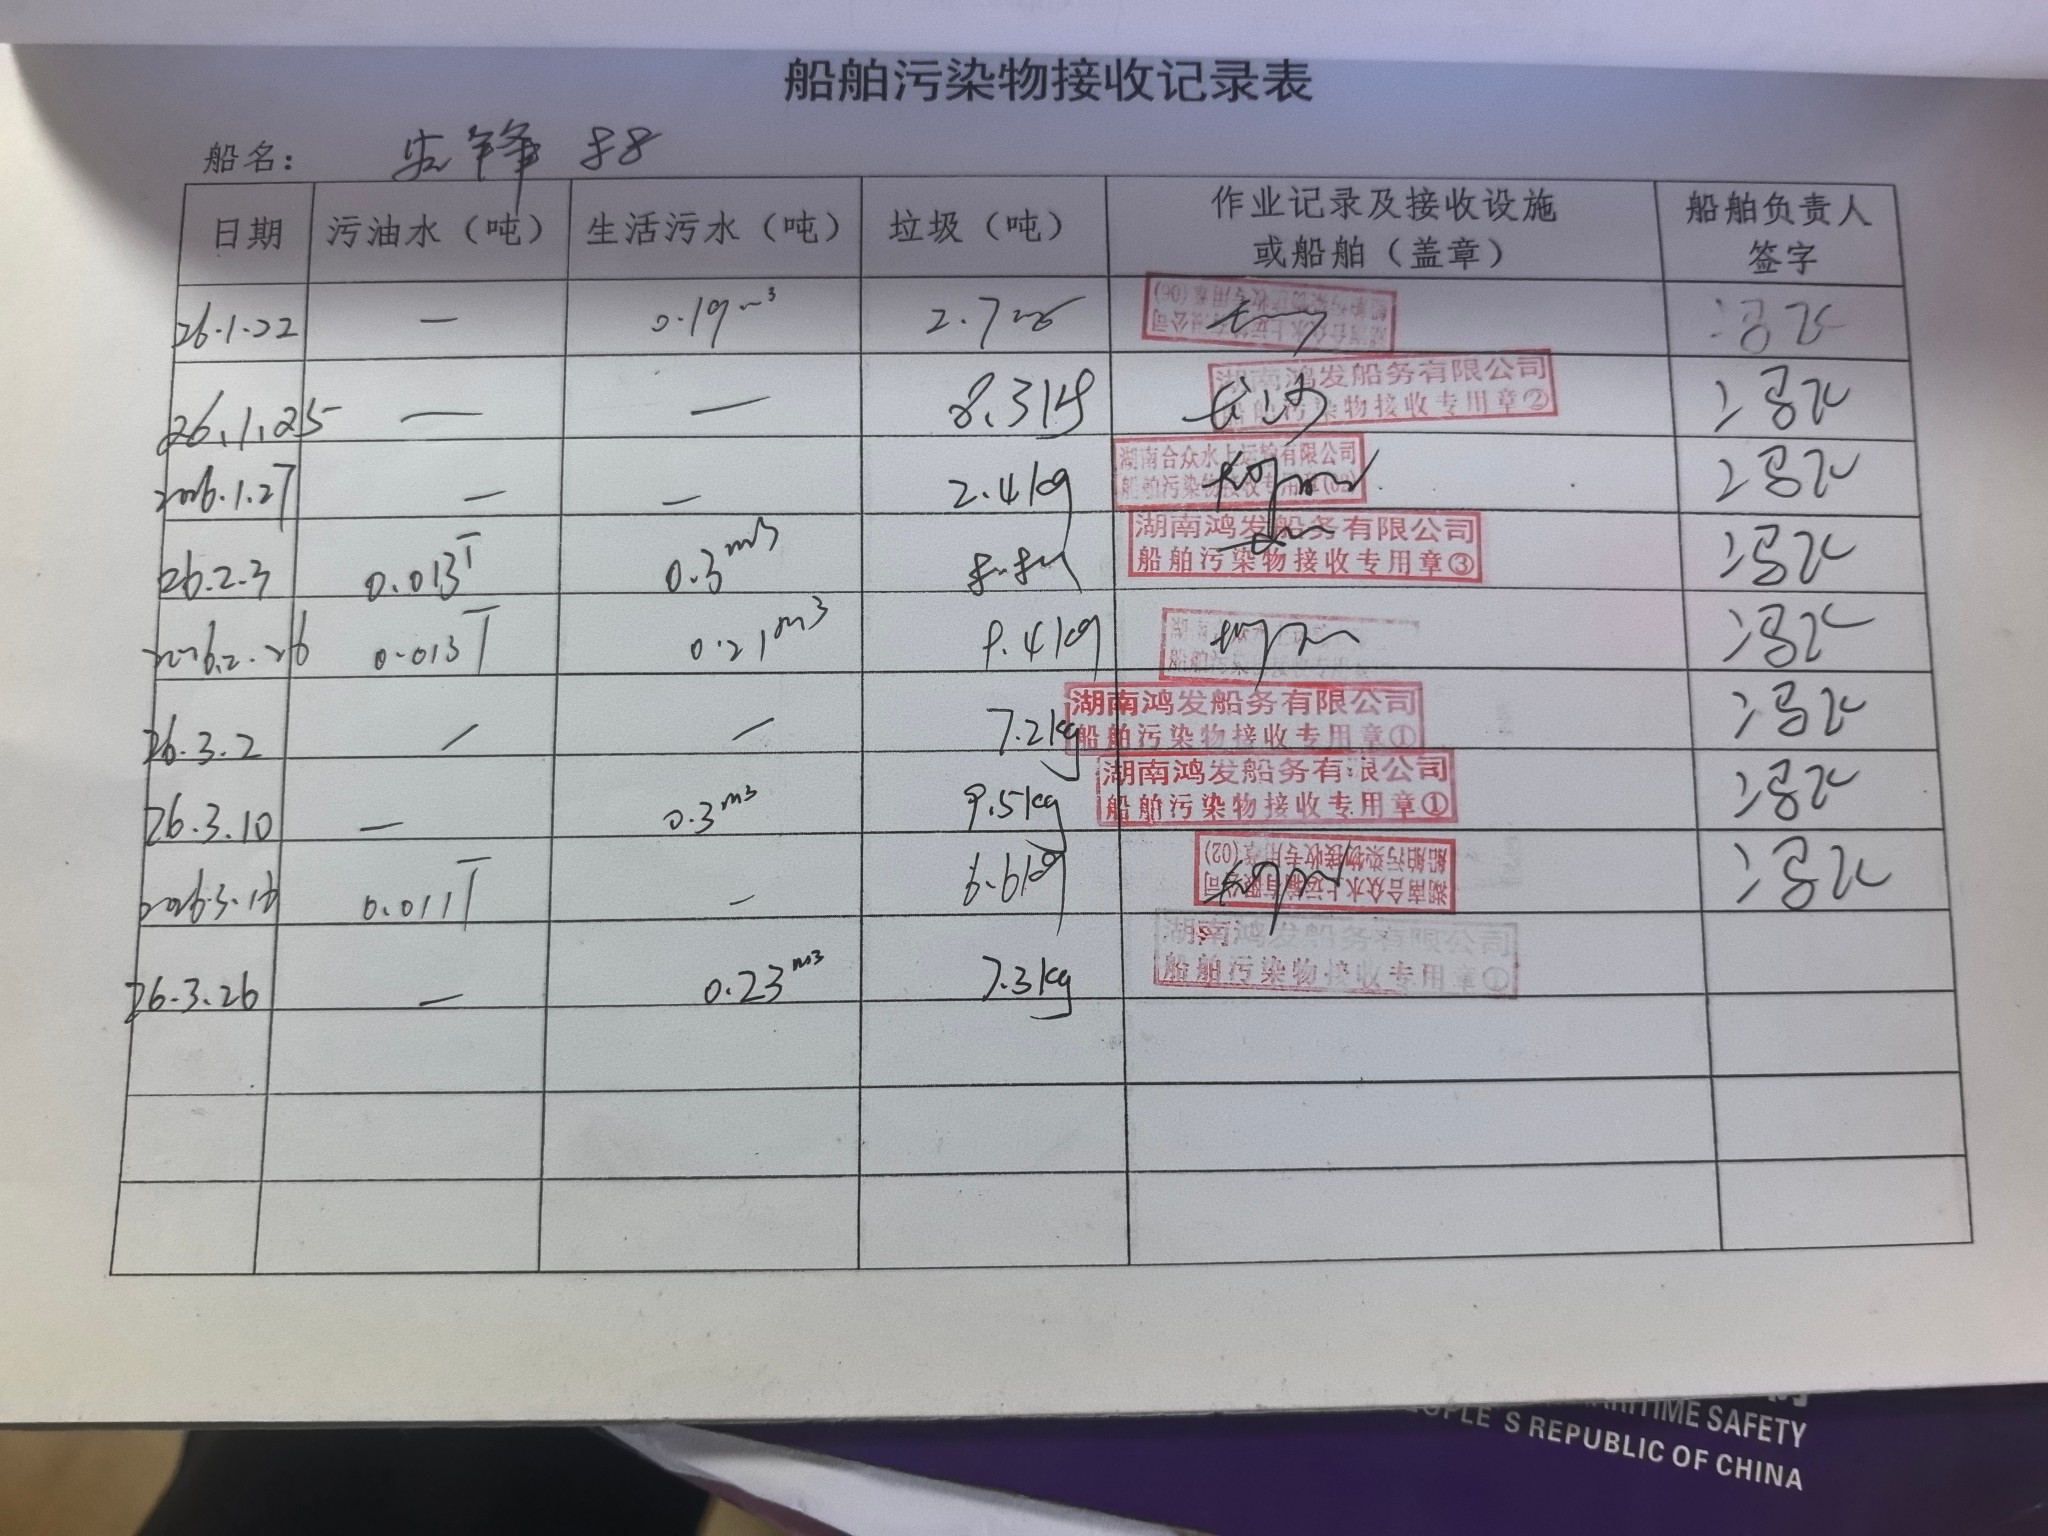 船舶污染物接收记录表
船名： 宏锋 88
日期 污油水（吨） 生活污水（吨） 垃圾（吨） 作业记录及接收设施或船舶（盖章） 船舶负责人签字
26.1.22 — 0.19m³ 2.7 湖南合众水上运输有限公司 船舶污染物接收专用章(06)
26.1.25 — — 8.3kg 长沙 湖南鸿发船务有限公司 船舶污染物接收专用章②
2026.1.27 — — 2.4kg 湖南合众水上运输有限公司 船舶污染物接收专用章(02)
26.2.3 0.013T 0.3m3 湖南鸿发船务有限公司 船舶污染物接收专用章③
2026.2.26 0.013T 0.21m3 9.4kg 船舶污染物接收专用章
26.3.2 — — 7.2kg 湖南鸿发船务有限公司 船舶污染物接收专用章①
26.3.10 — 0.3m3 9.5kg 湖南鸿发船务有限公司 船舶污染物接收专用章①
2026.3.16 0.011T — 6.6kg 湖南合众水上运输有限公司 船舶污染物接收专用章(02)
26.3.26 — 0.23m3 7.3kg 湖南鸿发船务有限公司 船舶污染物接收专用章①
MARITIME SAFETY
PEOPLE'S REPUBLIC OF CHINA